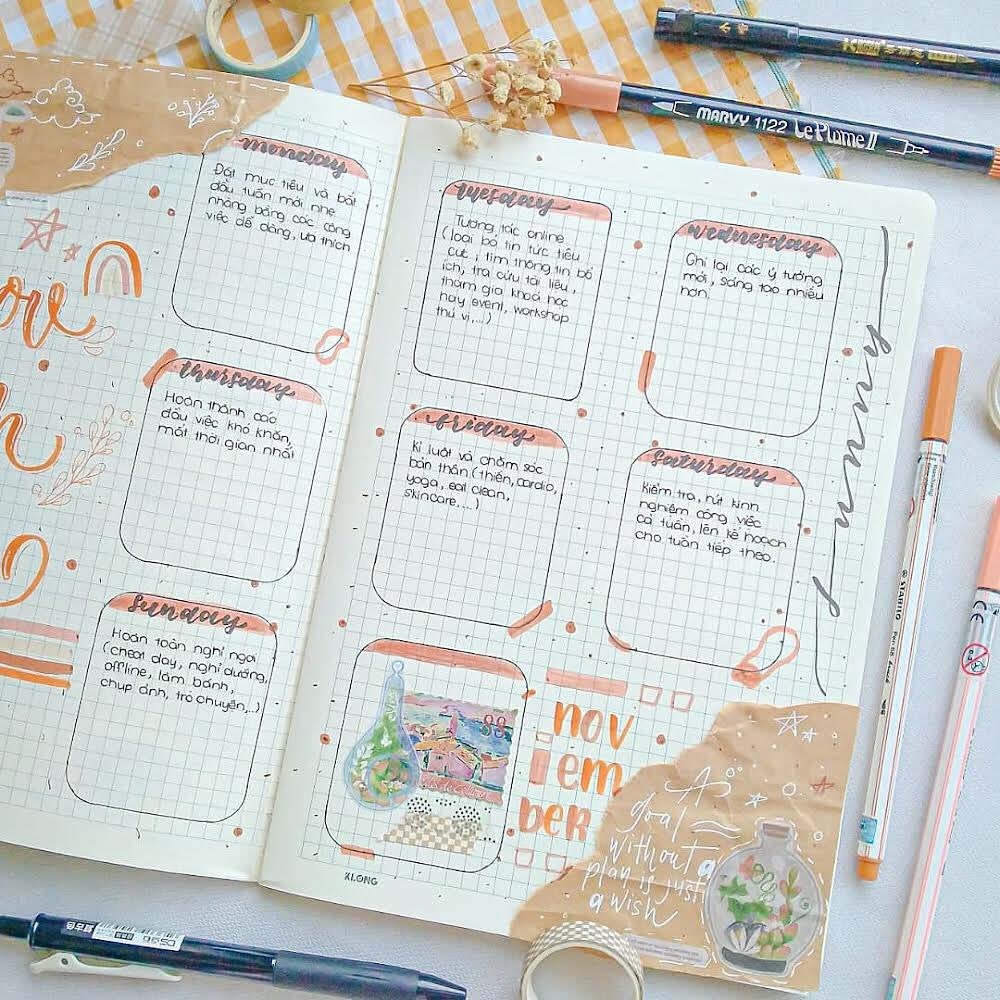 monday
Đặt mục tiêu và bắt
đầu tuần mới nhẹ
nhàng bằng các công
việc dễ dàng, ưa thích
tuesday
Tương tác online
(loại bỏ tin tức tiêu
cực, tìm thông tin bổ
ích, tra cứu tài liệu,
tham gia khoá học
hay event, workshop
thú vị,...)
wednesday
Ghi lại các ý tưởng
mới, sáng tạo nhiều
hơn.
thursday
Hoàn thành các
đầu việc khó khăn,
mất thời gian nhất
friday
Kỉ luật và chăm sóc
bản thân (thiền, cardio,
yoga, eat clean,
skincare....)
saturday
Kiểm tra, rút kinh
nghiệm công việc
cả tuần, lên kế hoạch
cho tuần tiếp theo.
sunday
Hoàn toàn nghỉ ngơi
(cheat day, nghỉ dưỡng,
offline, làm bánh,
chụp ảnh, trò chuyện,..)
sunny
88
nov
em
ber
A
goal
without a
plan is just
a wish
KLONG
MARVY 1122 Le Plume II
STABILO Pen 68
CE